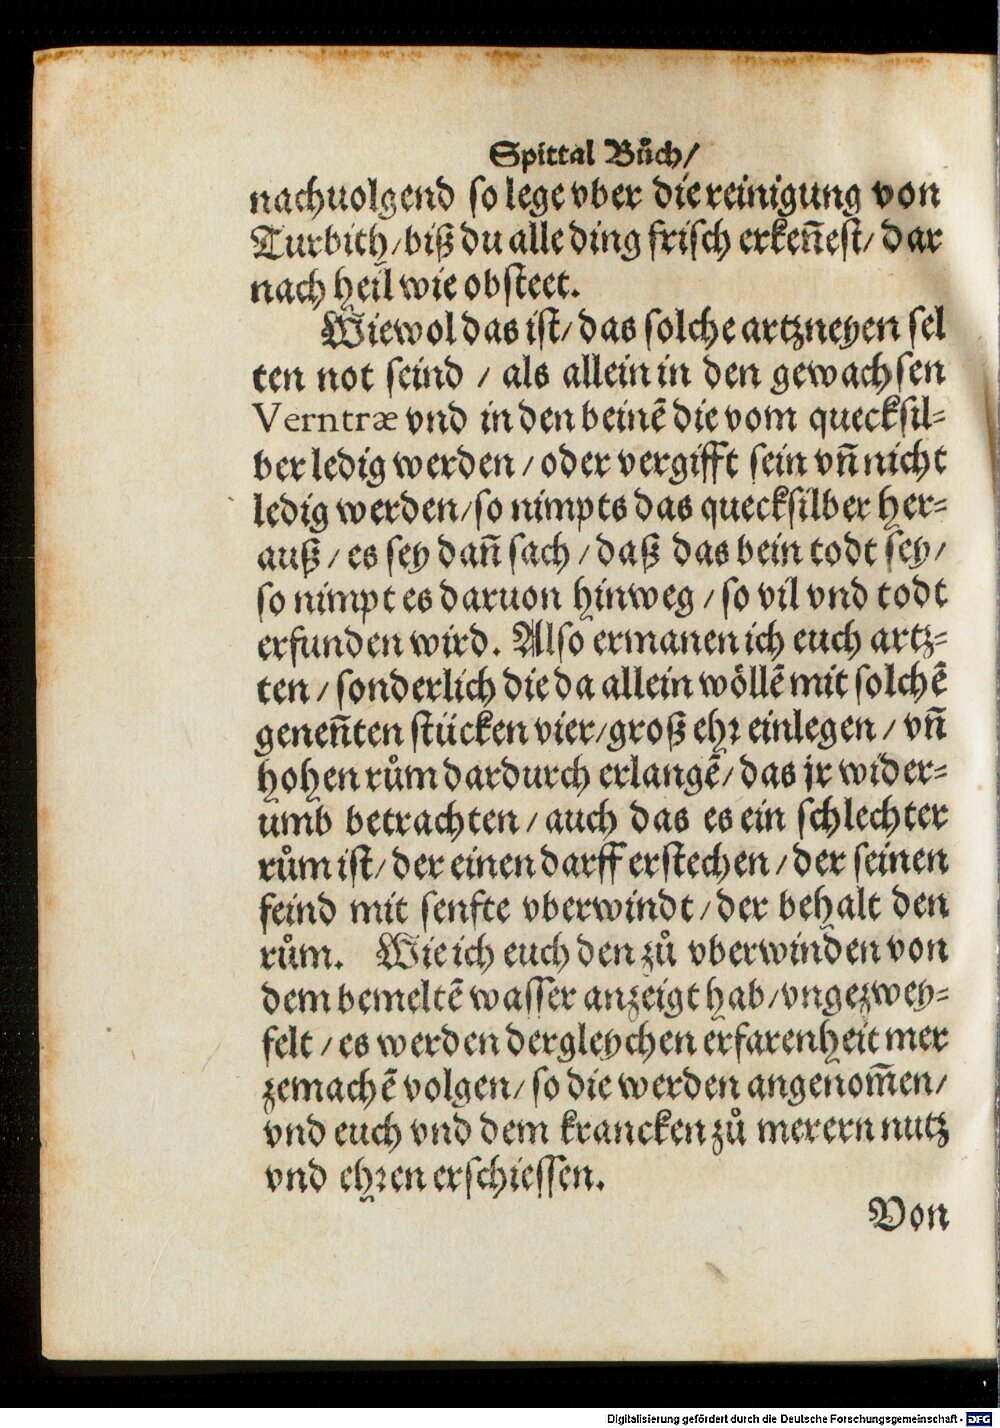 Spittal Bůch/
nachuolgend so lege vber die reinigung von
Turbith/biß du alle ding frisch erkeñest/ dar
nach heil wie obsteet.
Wiewol das ist/ das solche artzneyen sel
ten not seind / als allein in den gewachsen
Verntræ vnd in den beinẽ die vom quecksil=
ber ledig werden / oder vergifft sein vñ nicht
ledig werden/so nimpts das quecksilber her=
auß / es sey dañ sach / daß das bein todt sey/
so nimpt es daruon hinweg / so vil vnd todt
erfunden wird. Also ermanen ich euch artz=
ten / sonderlich die da allein wöllẽ mit solchẽ
geneñten stücken vier/groß ehr einlegen / vñ
hohen rům dardurch erlangẽ/ das jr wider=
umb betrachten / auch das es ein schlechter
růmist/ der einen darff erstechen / der seinen
feind mit senfte vberwindt / der behalt den
rům. Wie ich euch den zů vberwinden von
dem bemeltẽ wasser anzeigt hab/vngezwey=
felt / es werden dergleychen erfarenheit mer
zemachẽ volgen/ so die werden angenom̃en/
vnd euch vnd dem krancken zů merern nutz
vnd ehren erschiessen.
Von
Digitalisierung gefördert durch die Deutsche Forschungsgemeinschaft - DFG